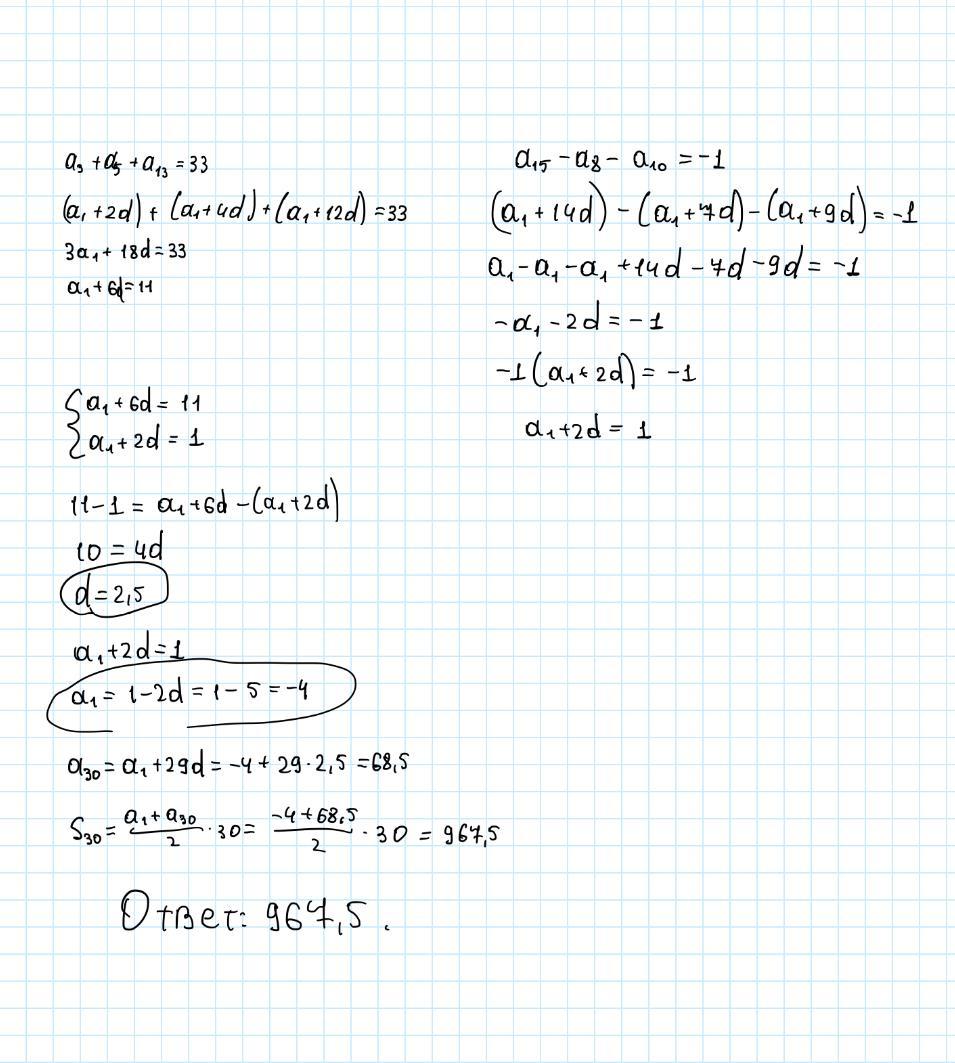 a₃ + a₅ + a₁₃ = 33
(a₁ + 2d) + (a₁ + 4d) + (a₁ + 12d) = 33
3a₁ + 18d = 33
a₁ + 6d = 11
a₁₅ - a₈ - a₁₀ = -1
(a₁ + 14d) - (a₁ + 7d) - (a₁ + 9d) = -1
a₁ - a₁ - a₁ + 14d - 7d - 9d = -1
-a₁ - 2d = -1
-1(a₁ + 2d) = -1
a₁ + 2d = 1
{ a₁ + 6d = 11
a₁ + 2d = 1
11 - 1 = a₁ + 6d - (a₁ + 2d)
10 = 4d
d = 2,5
a₁ + 2d = 1
a₁ = 1 - 2d = 1 - 5 = -4
a₃₀ = a₁ + 29d = -4 + 29 · 2,5 = 68,5
S₃₀ = (a₁ + a₃₀)/2 · 30 = (-4 + 68,5)/2 · 30 = 967,5
Ответ: 967,5.